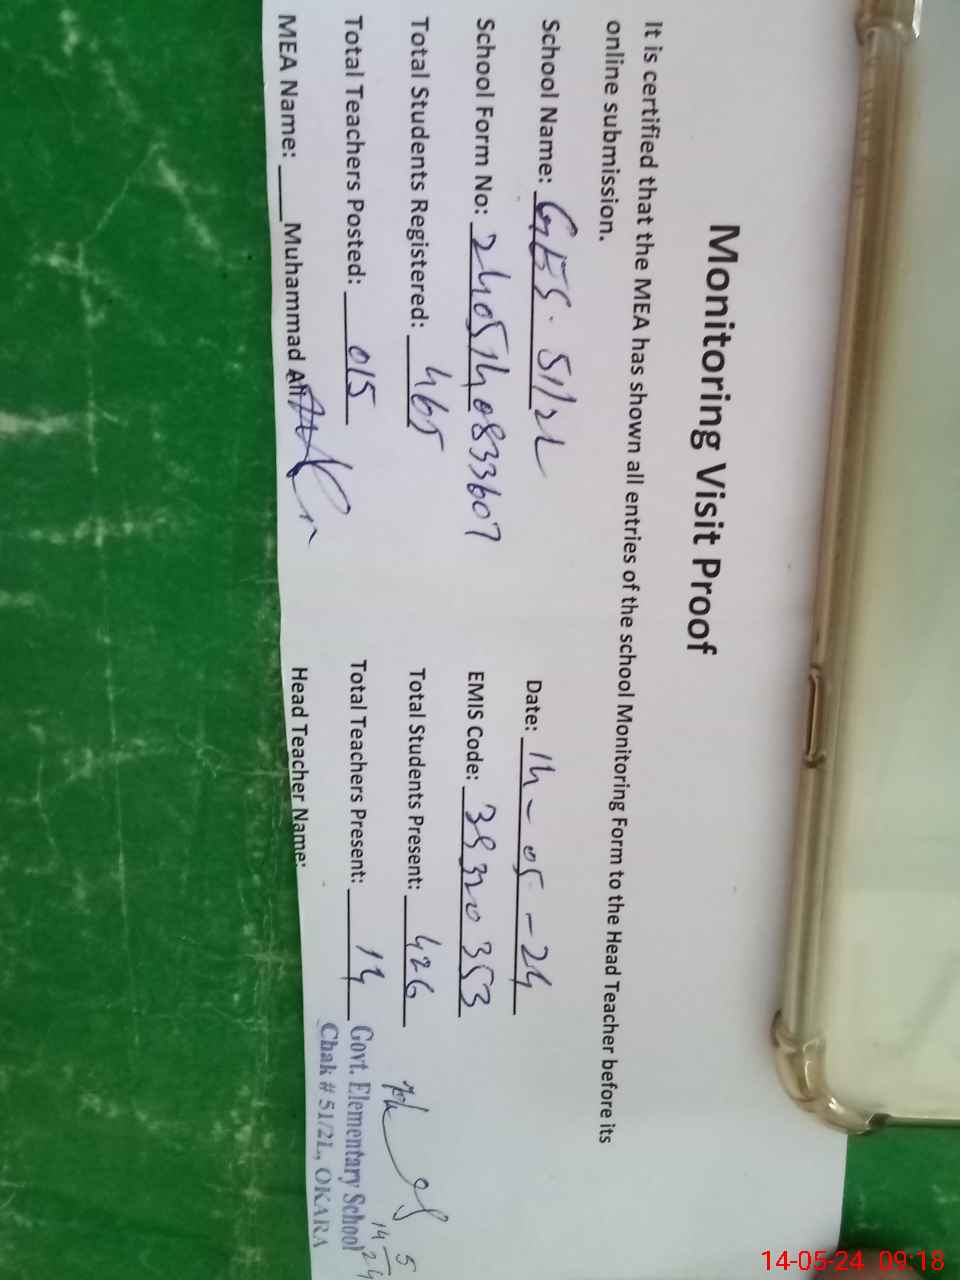 Monitoring Visit Proof
It is certified that the MEA has shown all entries of the school Monitoring Form to the Head Teacher before its
online submission.
School Name: GES. 51/2L Date: 14-05-24
School Form No: 2405140833607 EMIS Code: 39320353
Total Students Registered: 465 Total Students Present: 426
Total Teachers Posted: 015 Total Teachers Present: 14
MEA Name: ____Muhammad Ali Head Teacher Name:
Govt. Elementary School
Chak # 51/2L, OKARA
14/5/24
14-05-24 09:18